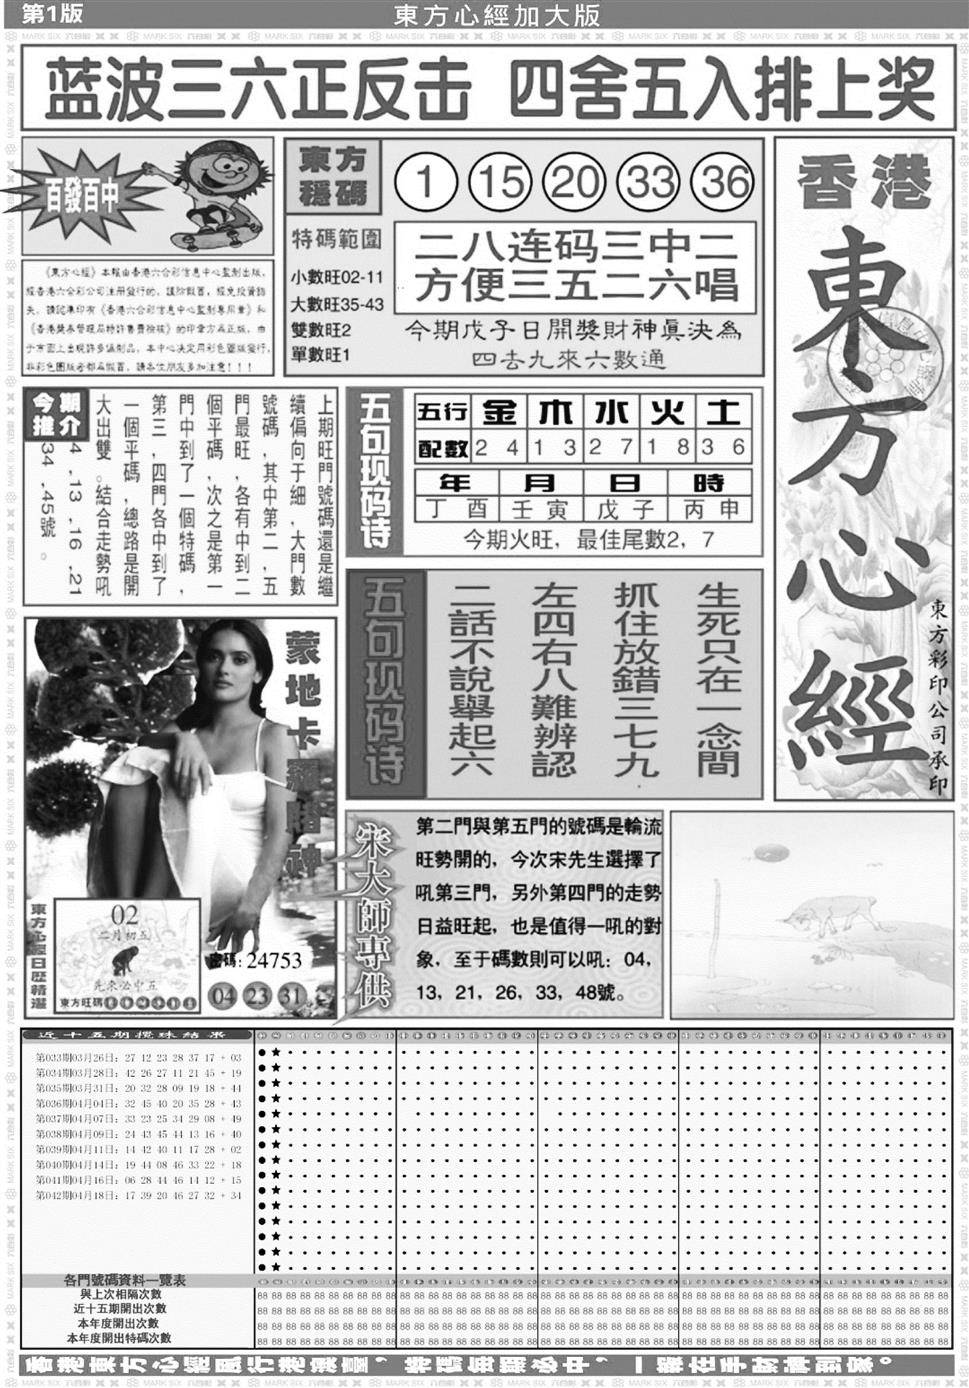 第1版
東方心經加大版
蓝波三六正反击 四舍五入排上奖
百發百中
東方
穩碼
1 15 20 33 36
特碼範圍
小數旺02-11
大數旺35-43
雙數旺2
單數旺1
二八连码三中二
方便三五二六唱
今期戊子日開獎財神真決為
四去九來六數通
香港
東方心經
東方彩印公司承印
《東方心經》本報由香港六合彩信息中心監制出版，
經香港六合彩公司注冊發行的，謹防假冒，經免投資錯
失。請認準印有《香港六合彩信息中心監制專用章》和
《香港獎券管理局特許書費檢核》的印章方爲正版。由
于市面上出現許多僞制品，本中心決定用彩色圖版發行，
非彩色圖版者都爲假冒，請各位朋友多加注意！！！
今期
推介
上期旺門號碼還是繼
續偏向于細，大門數
號碼，其中第二，五
門最旺，各有中到二
個平碼，次之是第一
門中到了一個特碼，
第三，四門各中到了
一個平碼，總路是開
大出雙。結合走勢吼
4，13，16，21
34，45號。
五句现码诗
五行 金 木 水 火 土
配數 2 4 1 3 2 7 1 8 3 6
年 月 日 時
丁酉 壬寅 戊子 丙申
今期火旺，最佳尾數2，7
五句现码诗
生死只在一念間
抓住放錯三七九
左四右八難辨認
二話不說舉起六
蒙地卡羅賭神
東方心經日歷精選
02
二月初五
先來必中五
東方旺碼
密碼：24753
04 23 31
宋大師專供
第二門與第五門的號碼是輪流
旺勢開的，今次宋先生選擇了
吼第三門，另外第四門的走勢
日益旺起，也是值得一吼的對
象，至于碼數則可以吼：04，
13，21，26，33，48號。
近十五期攪珠結果
第033期03月26日：27 12 23 28 37 17 + 03
第034期03月28日：42 26 27 11 21 45 + 19
第035期03月31日：20 32 28 09 19 18 + 44
第036期04月04日：32 45 40 20 35 28 + 43
第037期04月07日：33 23 25 34 29 08 + 49
第038期04月09日：24 43 45 44 13 16 + 40
第039期04月11日：14 42 40 11 17 28 + 02
第040期04月14日：19 44 08 46 33 22 + 18
第041期04月16日：06 28 44 46 14 12 + 15
第042期04月18日：17 39 20 46 27 32 + 34
各門號碼資料一覽表
與上次相隔次數
近十五期開出次數
本年度開出次數
本年度開出特碼次數